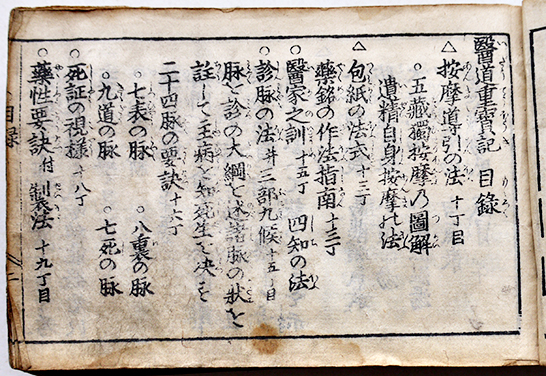 醫道重寳記 目録
△按摩導引の法 十丁目
○五藏獨按摩乃圖解
遺精自身按摩の法
△包紙の法式 十三丁
藥銘の作法指南 十三丁
○醫家之訓 十五丁 四知の法
○診脉の法 并三部九候 十五丁目
脉を診の大綱を述諸脉の狀を
註して主病を知死生を决を
二十四脉の要訣 十六丁
○七表の脉 ○八裏の脉
○九道の脉 ○七死の脉
○死証の視様 十八丁
○藥性要訣 付 製法 十九丁目
目録